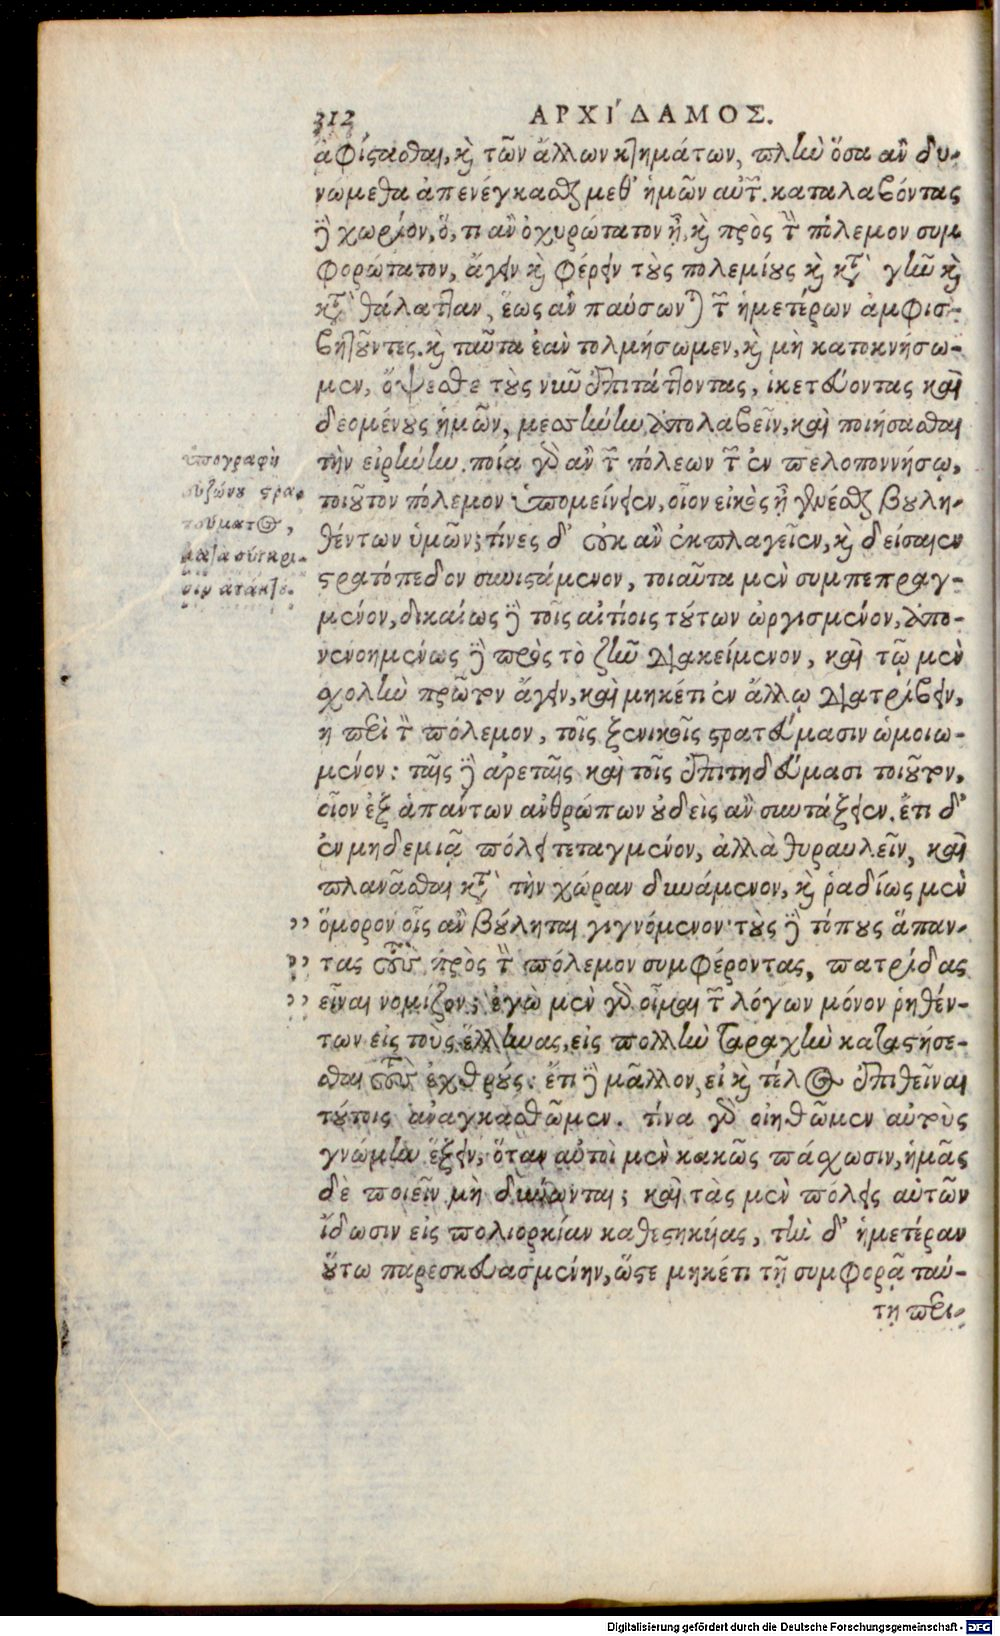 312 ΑΡΧΙ´ΔΑΜΟΣ.
ἀφίστασθαι, καὶ τῶν ἄλλων κτημάτων, πλὴν ὅσα ἂν δυ-
νώμεθα ἀπενέγκασθαι μεθ’ ἡμῶν αὐτῶν. καταλαβόντας
δὲ χωρίον, ὅ, τι ἂν ὀχυρώτατον ᾖ, καὶ πρὸς τὸν πόλεμον συμ
φορώτατον, ἄγειν καὶ φέρειν τοὺς πολεμίους καὶ κατὰ γῆν καὶ
κατὰ θάλατταν, ἕως ἂν παύσωνται τῶν ἡμετέρων ἀμφισ-
βητοῦντες. καὶ ταῦτα ἐὰν τολμήσωμεν, καὶ μὴ κατοκνήσω-
μεν, ὄψεσθε τοὺς νῦν ἐπιτάττοντας, ἱκετεύοντας καὶ
δεομένους ἡμῶν, μεσσήνην ἀπολαβεῖν, καὶ ποιήσασθαι
τὴν εἰρήνην. ποία γὰρ ἂν τῶν πόλεων τῶν ἐν πελοποννήσῳ,
τοιοῦτον πόλεμον ὑπομείνειεν, οἷον εἰκὸς ἦ γενέσθαι βουλη-
θέντων ὑμῶν; τίνες δ’ οὐκ ἂν ἐκπλαγεῖεν, καὶ δείσαιεν
στρατόπεδον συνιστάμενον, τοιαῦτα μὲν συμπεπραγ-
μένον, δικαίως δὲ τοῖς αἰτίοις τούτων ὠργισμένον, ἀπο-
νενοημένως δὲ πρὸς τὸ ζῆν διακείμενον, καὶ τῷ μὲν
σχολὴν πρῶτον ἄγειν, καὶ μηκέτι ἐν ἄλλῳ διατρίβειν,
ἢ περὶ τὸν πόλεμον, τοῖς ξενικοῖς στρατεύμασιν ὡμοιω-
μένον: ταῖς δὲ ἀρεταῖς καὶ τοῖς ἐπιτηδεύμασι τοιοῦτον,
οἷον ἐξ ἁπάντων ἀνθρώπων οὐδεὶς ἂν συντάξειεν. ἔτι δ’
ἐν μηδεμιᾷ πόλει τεταγμένον, ἀλλὰ θυραυλεῖν, καὶ
πλανᾶσθαι κατὰ τὴν χώραν δυνάμενον, καὶ ῥαδίως μὲν
ὅμορον οἷς ἂν βούληται γιγνόμενον· τοὺς δὲ τόπους ἅπαν-
τας τοὺς πρὸς τὸν πόλεμον συμφέροντας, πατρίδας
εἶναι νομίζον; ἐγὼ μὲν γὰρ οἶμαι τῶν λόγων μόνον ῥηθέν-
των εἰς τοὺς ἕλληνας, εἰς πολλὴν ταραχὴν καταστήσε-
σθαι τοὺς ἐχθρούς: ἔτι δὲ μᾶλλον, εἰ καὶ τέλος ἐπιθεῖναι
τούτοις ἀναγκασθῶμεν. τίνα γὰρ οἰηθῶμεν αὐτοὺς
γνώμην ἕξειν, ὅταν αὐτοὶ μὲν κακῶς πάσχωσιν, ἡμᾶς
δὲ ποιεῖν μὴ δύνωνται; καὶ τὰς μὲν πόλεις αὑτῶν
ἴδωσιν εἰς πολιορκίαν καθεστηκυίας, τὴν δ’ ἡμετέραν
οὕτω παρεσκευασμένην, ὥστε μηκέτι τῇ συμφορᾷ ταύ-
τῃ περι-
ὑπογραφὴ
εὐζώνου στρα-
τεύματος,
κατὰ σύγκρι-
σιν
Digitalisierung gefördert durch die Deutsche Forschungsgemeinschaft - DFG